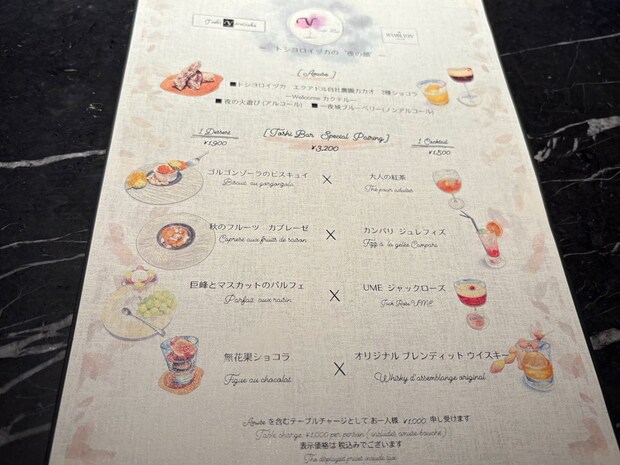 Toshi Yoroizuka
~ トシヨロイヅカの 夜の顔 ~
(Amuse)
■トシヨロイヅカ エクアドル自社農園カカオ 3種ショコラ
~Welcome カクテル~
■ 夜の火遊び (アルコール) ■ 一夜城ブルーベリー(ノンアルコール)
1 Dessert
¥1,900
(Toshi Bar Special Pairing)
¥3,200
1 Cocktail
¥1,500
ゴルゴンゾーラのビスキュイ × 大人の紅茶
Biscuit du gorgonzola Thé pour adultes
秋のフルーツ カプレーゼ × カンパリ ジュレフィズ
Caprese aux fruits de saison Fizz à la gelée Campari
巨峰とマスカットのパルフェ × UME ジャックローズ
Parfait aux raisin Jack Rose UME
無花果ショコラ × オリジナル ブレンディット ウイスキー
Figue au chocolat Whisky d'assemblange original
Amuse を含むテーブルチャージとして お一人様 ¥1,000 申し受けます
Table charge ¥1,000 per person (includes amuse-bouche)
表示価格は 税込みでございます
The displayed price include tax